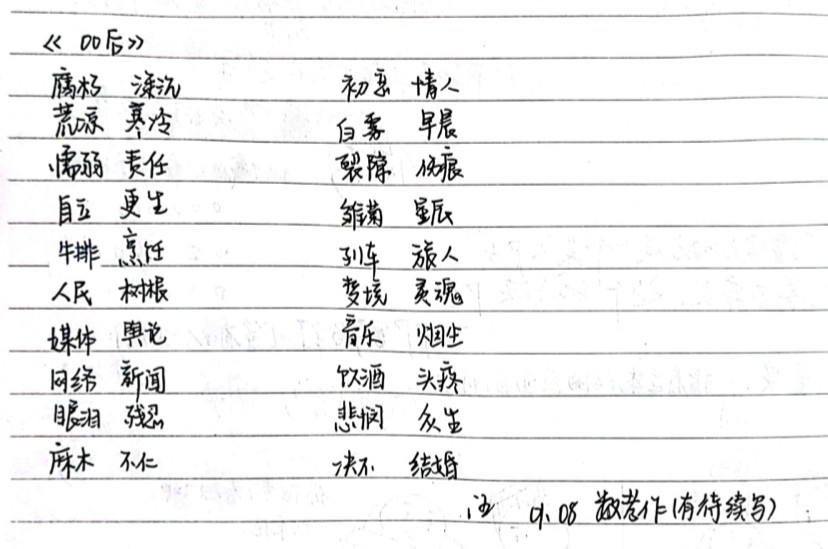 《00后》
腐朽 深沉 初恋 情人
荒凉 寒冷 白雾 早晨
懦弱 责任 裂隙 伤痕
自立 更生 雏菊 星辰
牛排 烹饪 列车 旅人
人民 树根 梦境 灵魂
媒体 舆论 音乐 烟尘
网络 新闻 饮酒 头疼
眼泪 残忍 悲悯 众生
麻木 不仁 决不 结婚
9.08 敬老作(有待续写)